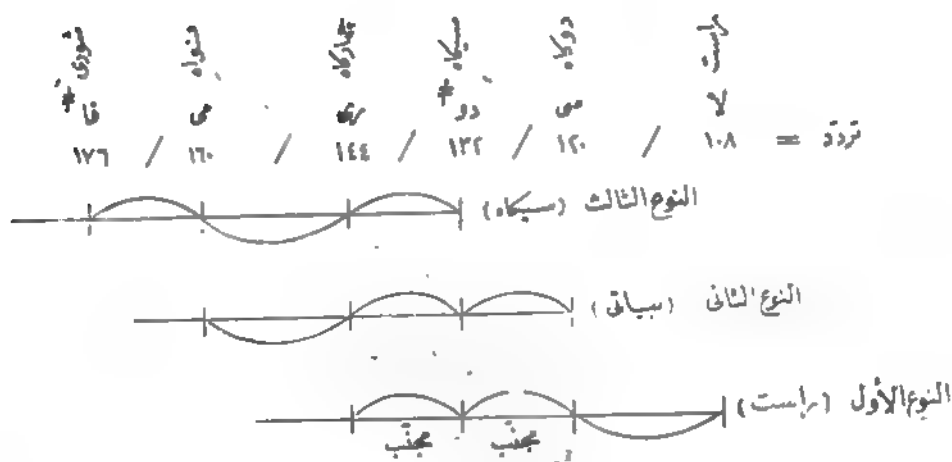 راست دوكاه سيكاه جهاركاه نواه حورى
لا سى دو# رى مى فا#
تردد = ١٠٨ / ١٢٠ / ١٣٢ / ١٤٤ / ١٦٠ / ١٧٦
النوع الثالث (سيكاه)
النوع الثانى (بياتى)
النوع الأول (راست)
مجنّب مجنّب